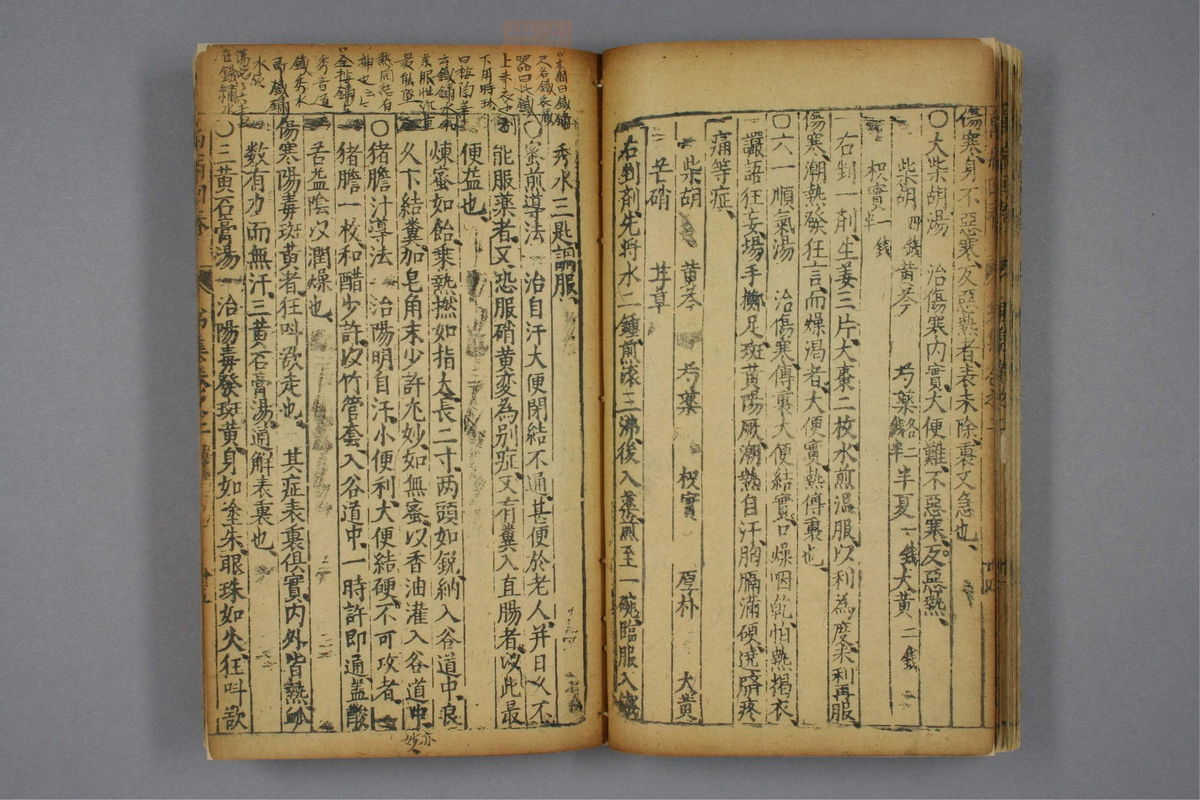 傷寒身不惡寒反惡熱者表未除裏又急也
〇大柴胡湯 治傷寒内實大便難不惡寒反惡熱
柴胡四錢 黄芩 芍藥各二錢半 半夏一錢 大黄二錢
枳實一錢半
右剉一劑生姜三片大棗二枚水煎温服以利為度未利再服
傷寒潮熱發狂言而燥渴者大便實熱傳裏也
〇六一順氣湯 治傷寒傳裏大便結實口燥咽乾怕熱揭衣
讝語狂妄揚手擲足斑黄陽厥潮熱自汗胸膈滿硬遶臍疼
痛等症
柴胡 黄芩 芍藥 枳實 厚朴 大黄
芒硝 甘草
右剉劑先將水二鍾煎滾三沸後入藥煎至一碗臨服入鐵
秀水三匙調服
〇蜜煎導法 治自汗大便閉結不通甚便於老人并日久不
能服藥者又恐服硝黄変為别症又有糞入直腸者以此最
便益也
煉蜜如飴乘熱撚如指大長二寸两頭如鋭納入谷道中良
久下結糞加皂角末少許尤妙如無蜜以香油灌入谷道中
亦妙
〇猪膽汁導法 治陽明自汗小便利大便結硬不可攻者
猪膽一枚和醋少許以竹管套入谷道中一時許即通盖酸
苦益陰以潤燥也
傷寒陽毒斑黄者狂叫欲走也 其症表裏俱實内外皆熱脉
数有力而無汗三黄石膏湯通解表裏也
〇三黄石膏湯 治陽毒發斑黄身如塗朱眼珠如火狂叫欲